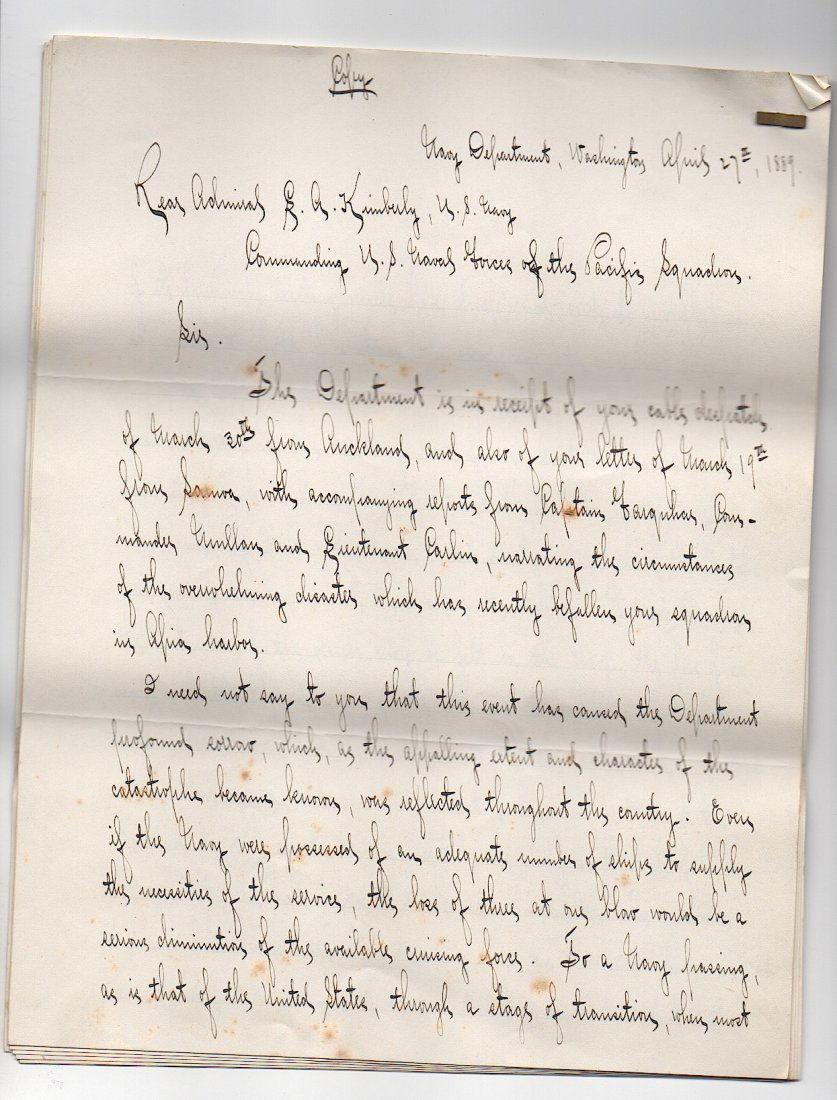 Copy
Navy Department, Washington April 27th, 1889.
Rear Admiral L. A. Kimberly, U. S. Navy
Commanding U. S. Naval Forces of the Pacific Squadron.
Sir.
The Department is in receipt of your cable despatch
of March 30th from Auckland, and also of your letter of March 19th
from Samoa, with accompanying reports from Captain Farquhar, Com-
mander Mullan and Lieutenant Carlin, narrating the circumstances
of the overwhelming disaster which has recently befallen your squadron
in Apia harbor.
I need not say to you that this event has caused the Department
profound sorrow, which, as the appalling extent and character of the
catastrophe became known, was reflected throughout the country. Even
if the Navy were possessed of an adequate number of ships to supply
the necessities of the service, the loss of three at one blow would be a
serious diminution of the available cruising force. To a Navy passing,
as is that of the United States, through a stage of transition, when most